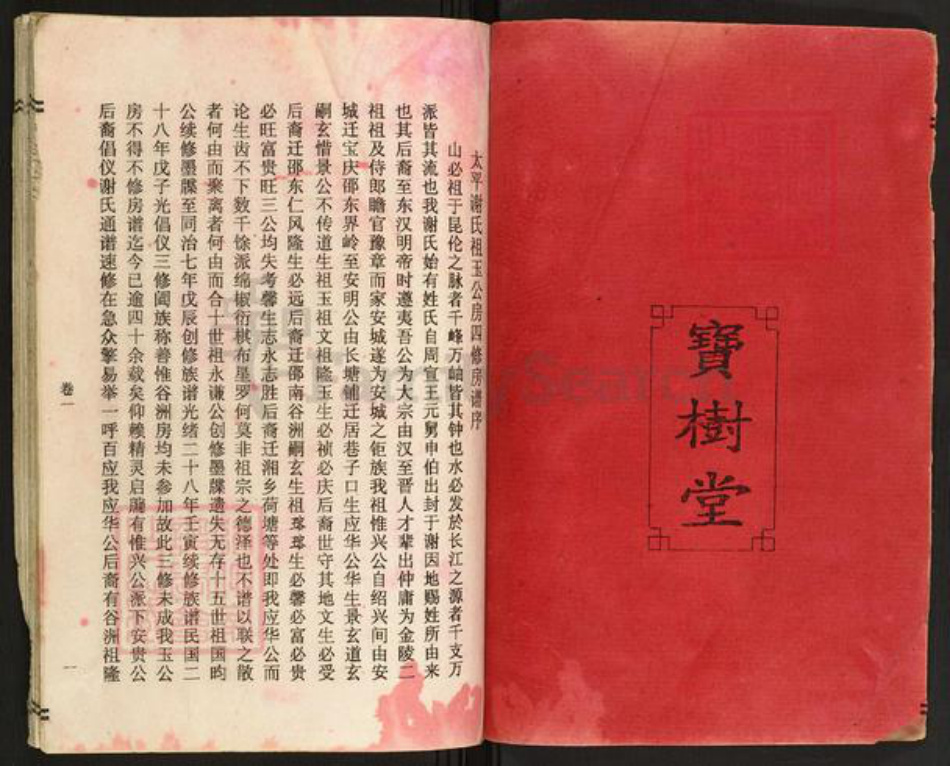 寶樹堂
太平谢氏祖玉公房四修房谱序
山必祖于昆伦之脉者千峰万岫皆其钟也水必发於长江之源者千支万
派皆其流也我谢氏始有姓氏自周宣王元舅申伯出封于谢因地赐姓所由来
也其后裔至东汉明帝时遵夷吾公为大宗由汉至晋人才辈出仲庸为金陵二
祖祖及侍郎瞻官豫章而家安城遂为安城之钜族我祖惟兴公自绍兴间由安
城迁宝庆邵东界岭至安明公由长塘铺迁居巷子口生应华公华生景玄道玄
嗣玄惜景公不传道生祖玉祖文祖隆玉生必祯必庆后裔世守其地文生必受
后裔迁邵东仁风隆生必远后裔迁邵南谷洲嗣玄生祖琢琢生必馨必富必贵
必旺富贵旺三公均失考馨生志永志胜后裔迁湘乡荷塘等处即我应华公而
论生齿不下数千馀派绵椒衍棋布星罗何莫非祖宗之德泽也不谱以联之散
者何由而聚离者何由而合十世祖永谦公创修墨牒遗失无存十五世祖国昀
公续修墨牒至同治七年戊辰创修族谱光绪二十八年壬寅续修族谱民国二
十八年戊子光倡仪三修阖族称善惟谷洲房均未参加故此三修未成我玉公
房不得不修房谱迄今已逾四十余载矣仰赖精灵启牖有惟兴公派下安贵公
后裔倡仪谢氏通谱速修在急众擎易举一呼百应我应华公后裔有谷洲祖隆
卷一
一